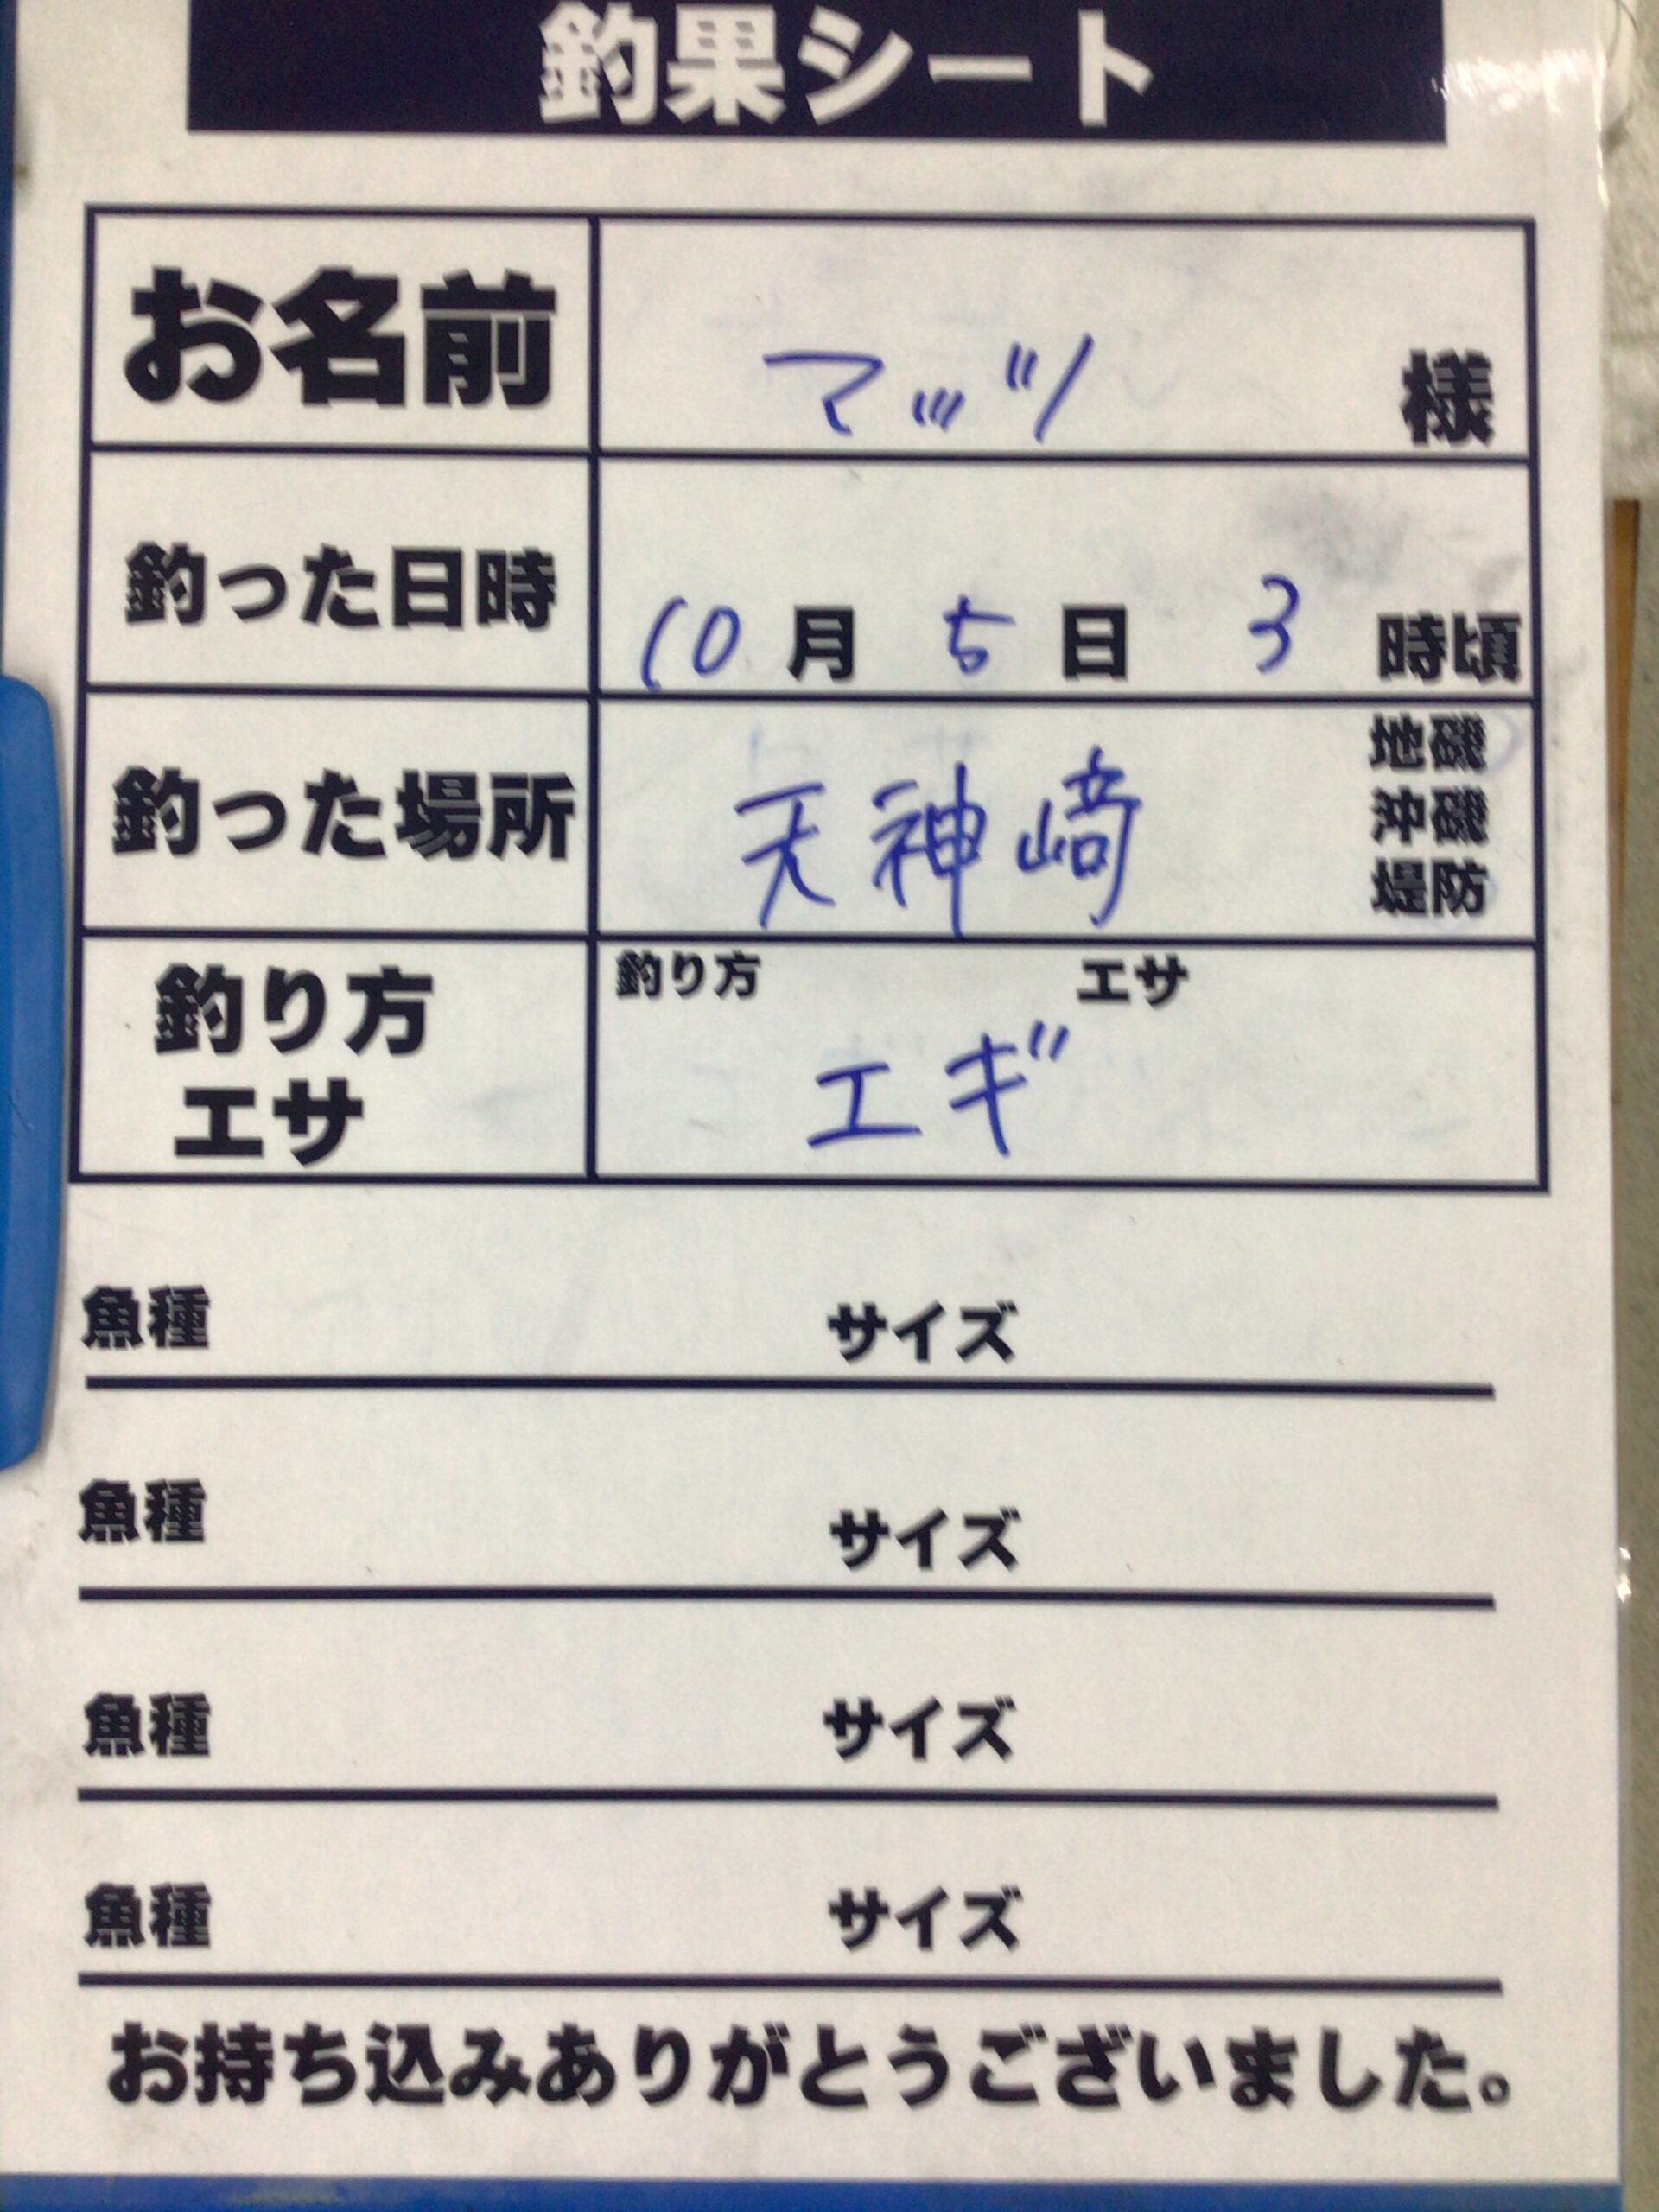 釣果シート
お名前 マッツ 様
釣った日時 10月5日 3時頃
釣った場所 天神﨑 地磯
沖磯
堤防
釣り方 釣り方 エサ
エサ エギ
魚種 サイズ
魚種 サイズ
魚種 サイズ
魚種 サイズ
お持ち込みありがとうございました。